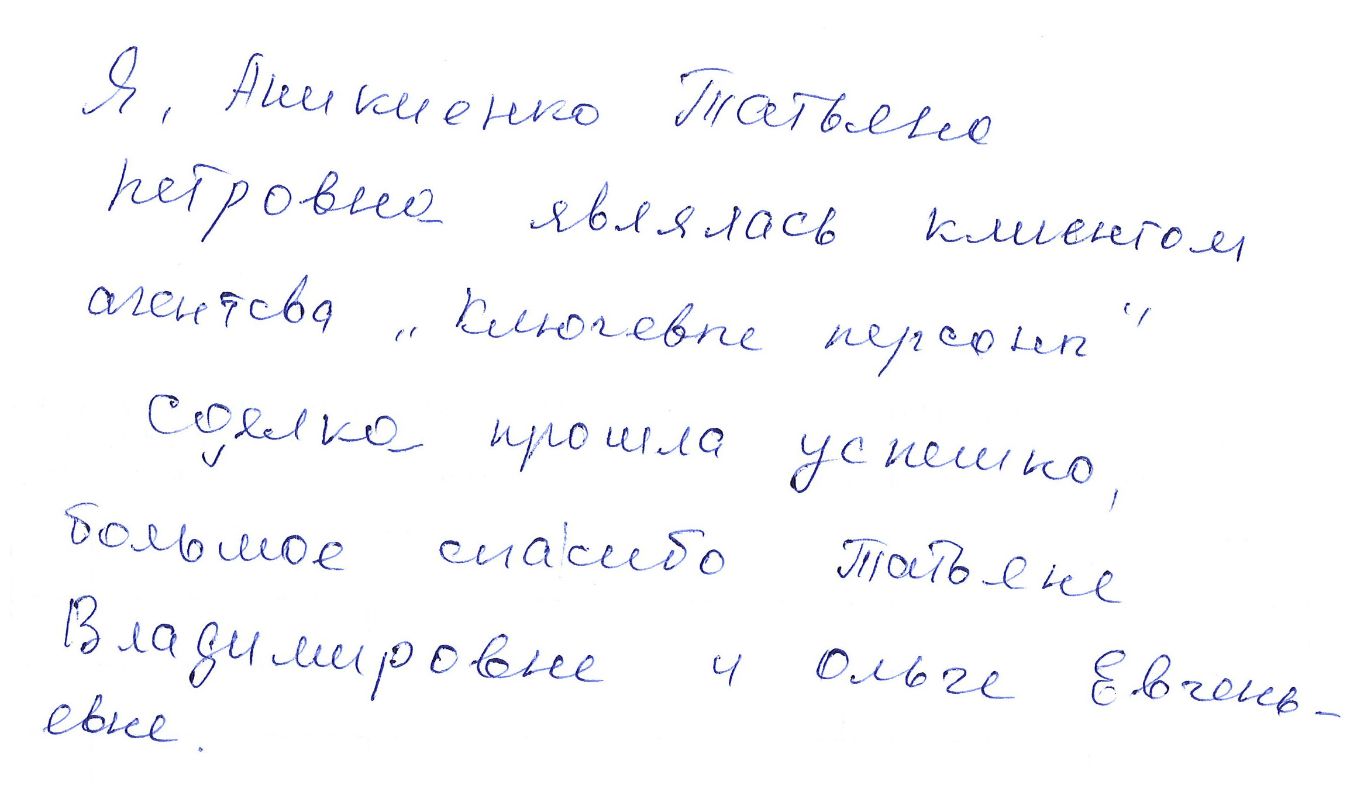 Я, Аникиенко Татьяна
петровна являлась клиентом
агентсва „Ключевые персоны"
Сделка прошла успешно,
большое спасибо Татьяне
Владимировне и Ольге Евгень-
евне.